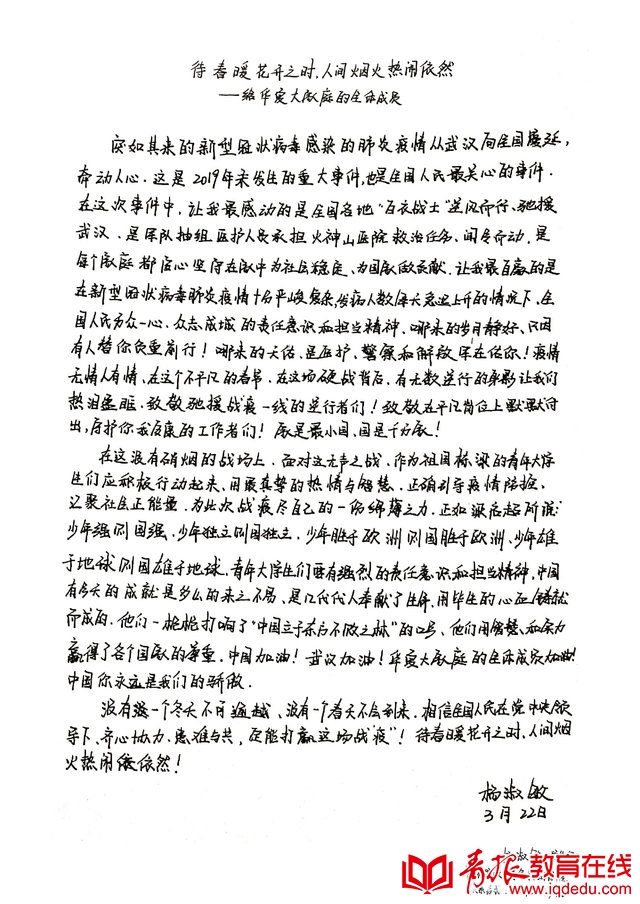 待春暖花开之时,人间烟火热闹依然
——给华爱大家庭的全体成员
突如其来的新型冠状病毒感染的肺炎疫情从武汉向全国蔓延,
牵动人心.这是2019年末发生的重大事件,也是全国人民最关心的事件.
在这次事件中,让我最感动的是全国各地"白衣战士"逆风而行、驰援
武汉.是军队抽组医护人员承担火神山医院救治任务、闻令而动,是
每个家庭都齐心坚守在家中为社会稳定、为国家做贡献.让我最自豪的是
在新型冠状病毒肺炎疫情十分严峻复杂,发病人数每天急速上升的情况下,全
国人民万众一心、众志成城的责任意识和担当精神.哪来的岁月静好,只因
有人替你负重前行!哪来的天佑,是医护、警察和解放军在佑你!疫情
无情人有情、在这个不平凡的春节、在这场硬战背后,有无数逆行的身影让我们
热泪盈眶.致敬驰援战疫一线的逆行者们!致敬在平凡岗位上默默付
出,守护你我健康的工作者们!家是最小国,国是千万家!
在这没有硝烟的战场上,面对这无声之战,作为祖国栋梁的青年大学
生们应积极行动起来,用最真挚的热情与智慧,正确引导疫情防控,
汇聚社会正能量.为此次战疫尽自己的一份绵薄之力.正如梁启超所说:
少年强则国强,少年独立则国独立,少年胜于欧洲则国胜于欧洲,少年雄
于地球则国雄于地球.青年大学生们要有强烈的责任意识和担当精神,中国
有今天的成就是多么的来之不易,是几代代人奉献了生命、用毕生的心血铸就
而成的.他们一炮炮打响了"中国立于东方不败之林"的口号、他们用智慧和实力
赢得了各个国家的尊重.中国加油!武汉加油!华爱大家庭的全体成员加油!
中国你永远是我们的骄傲.
没有一个冬天不可逾越、没有一个春天不会到来.相信全国人民在党中央领
导下、齐心协力、患难与共,定能打赢这场战"疫"!待春暖花开之时,人间烟
火热闹依然!
杨淑敏
3月22日
青报教育在线
www.iqdedu.com